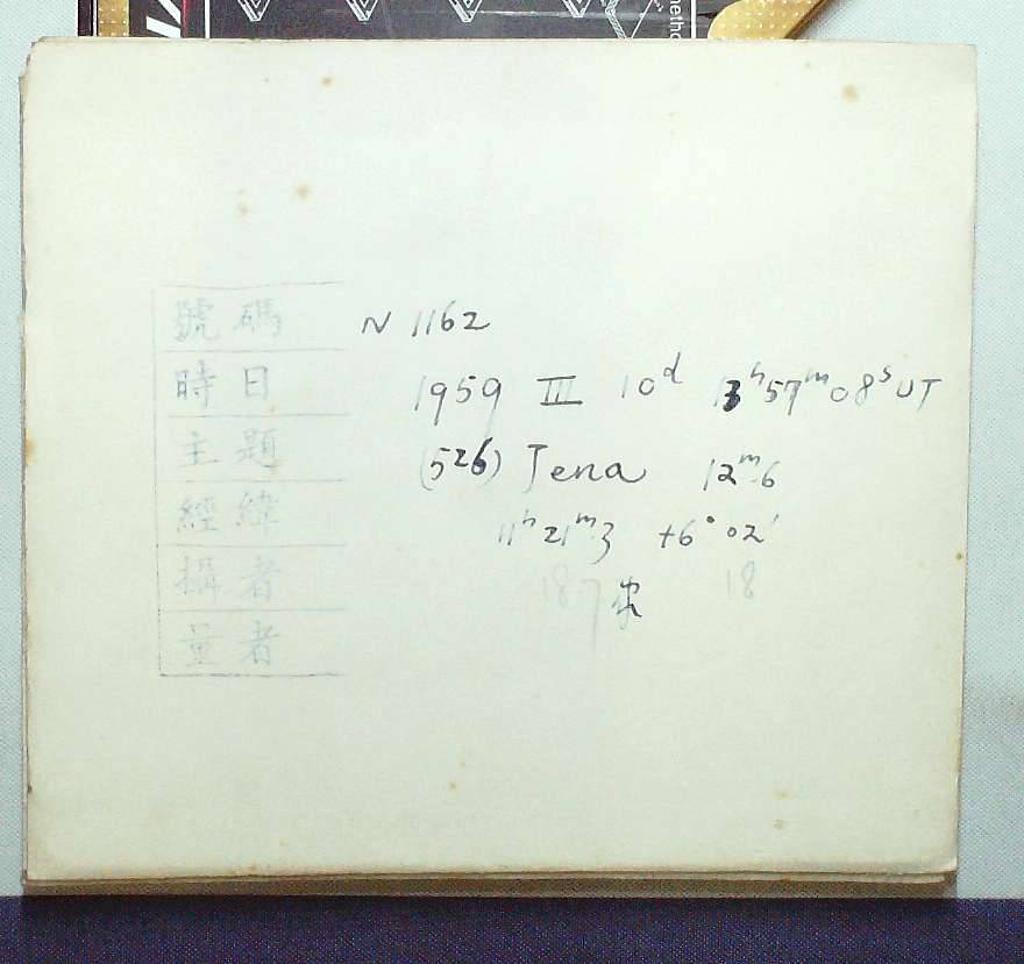 號碼 N 1162
時日 1959 III 10ᵈ 13ʰ57ᵐ08ˢ UT
主題 (526) Jena 12ᵐ.6
經緯 11ʰ21ᵐ.3 +6°02′
攝者
量者